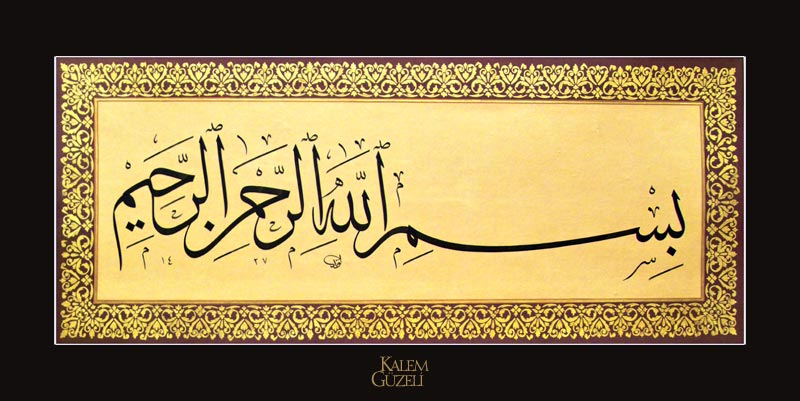 بِسْمِ اللّٰهِ الرَّحْمٰنِ الرَّحِيمِ
١٤٢٧
KALEM
GÜZELİ